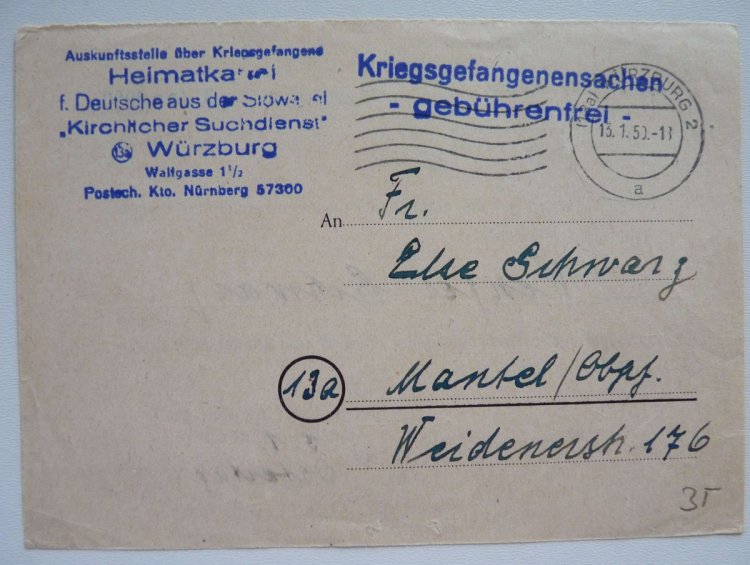 Auskunftsstelle über Kriegsgefangene
Heimatkartei
f. Deutsche aus der Slowakei
„Kirchlicher Suchdienst"
(13a) Würzburg
Wallgasse 1½
Postsch. Kto. Nürnberg 57300
Kriegsgefangenensachen
- gebührenfrei -
(13a) WÜRZBURG 2
a
An Fr.
Else Schwarz
13a Mantel/Obpf.
Weidenerstr. 176